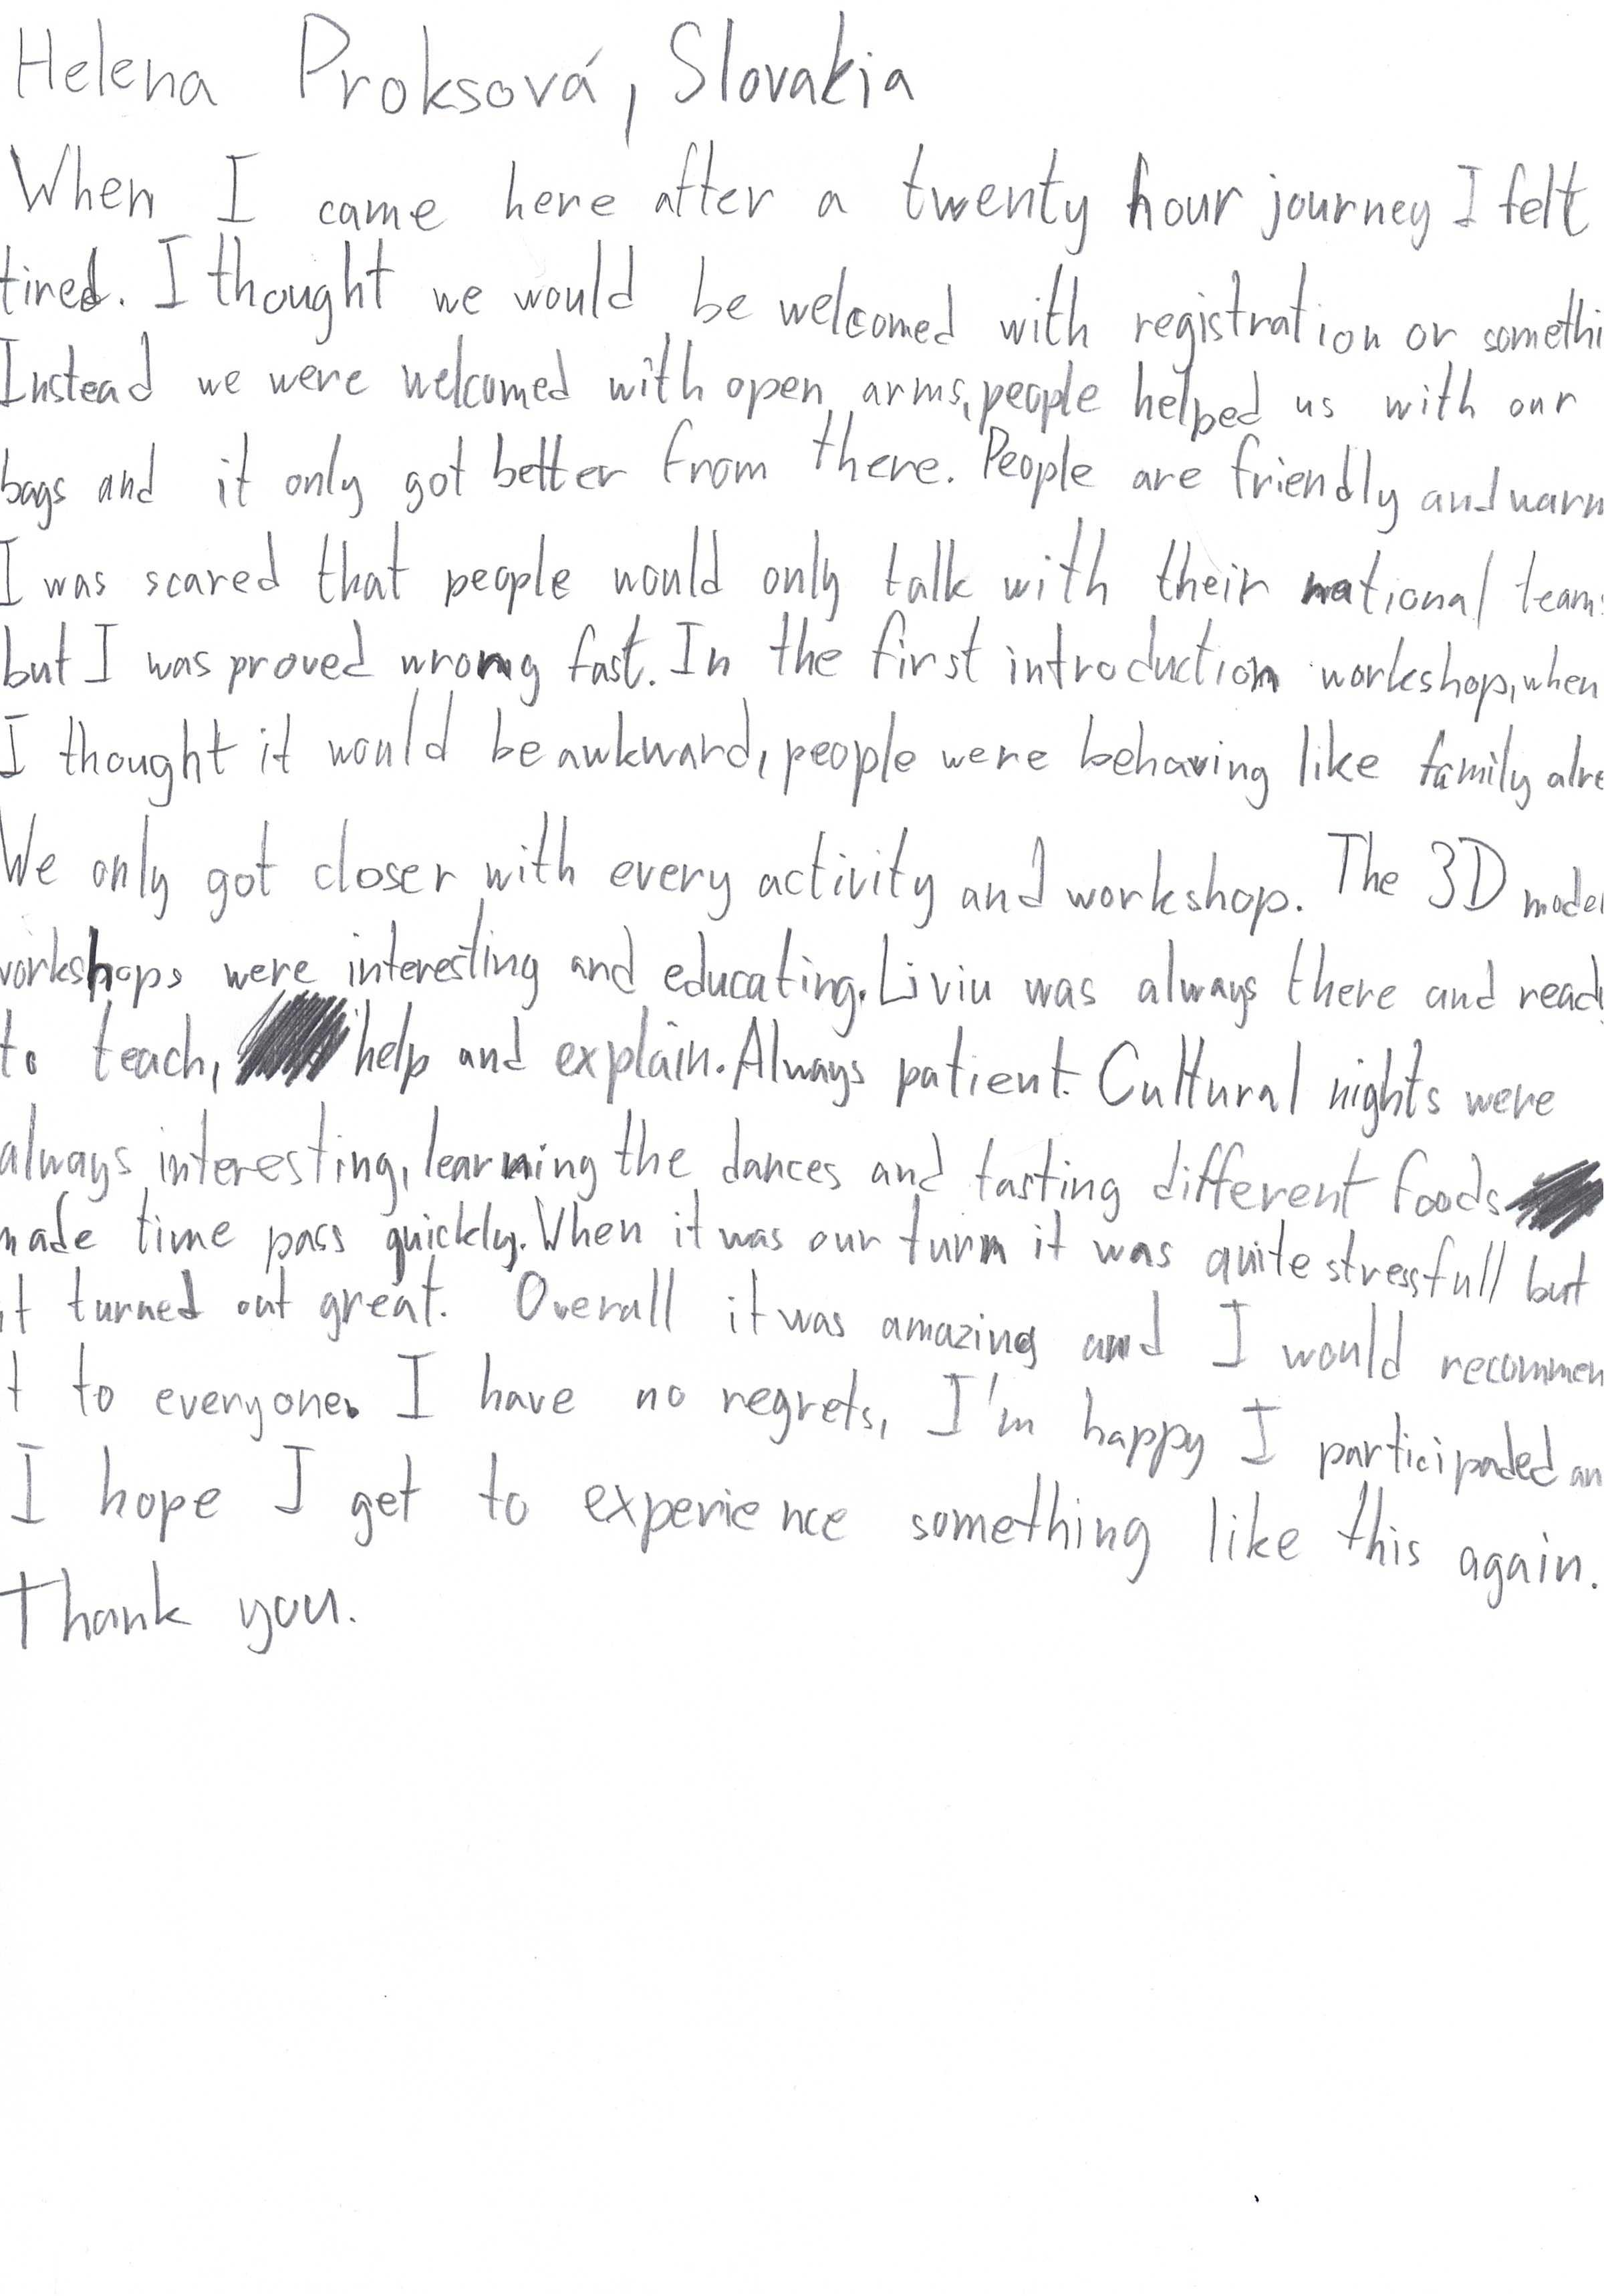 Helena Proksová, Slovakia
When I came here after a twenty hour journey I felt
tired. I thought we would be welcomed with registration or somethi
Instead we were welcomed with open arms, people helped us with our
bags and it only got better from there. People are friendly and warm
I was scared that people would only talk with their national teams
but I was proved wrong fast. In the first introduction workshop, when
I thought it would be awkward, people were behaving like family alre
We only got closer with every activity and workshop. The 3D model
workshops were interesting and educating. Liviu was always there and ready
to teach, help and explain. Always patient. Cultural nights were
always interesting, learning the dances and tasting different foods
made time pass quickly. When it was our turn it was quite stressfull but
it turned out great. Overall it was amazing and I would recommen
t to everyone. I have no regrets, I'm happy I participaded an
I hope I get to experience something like this again.
Thank you.